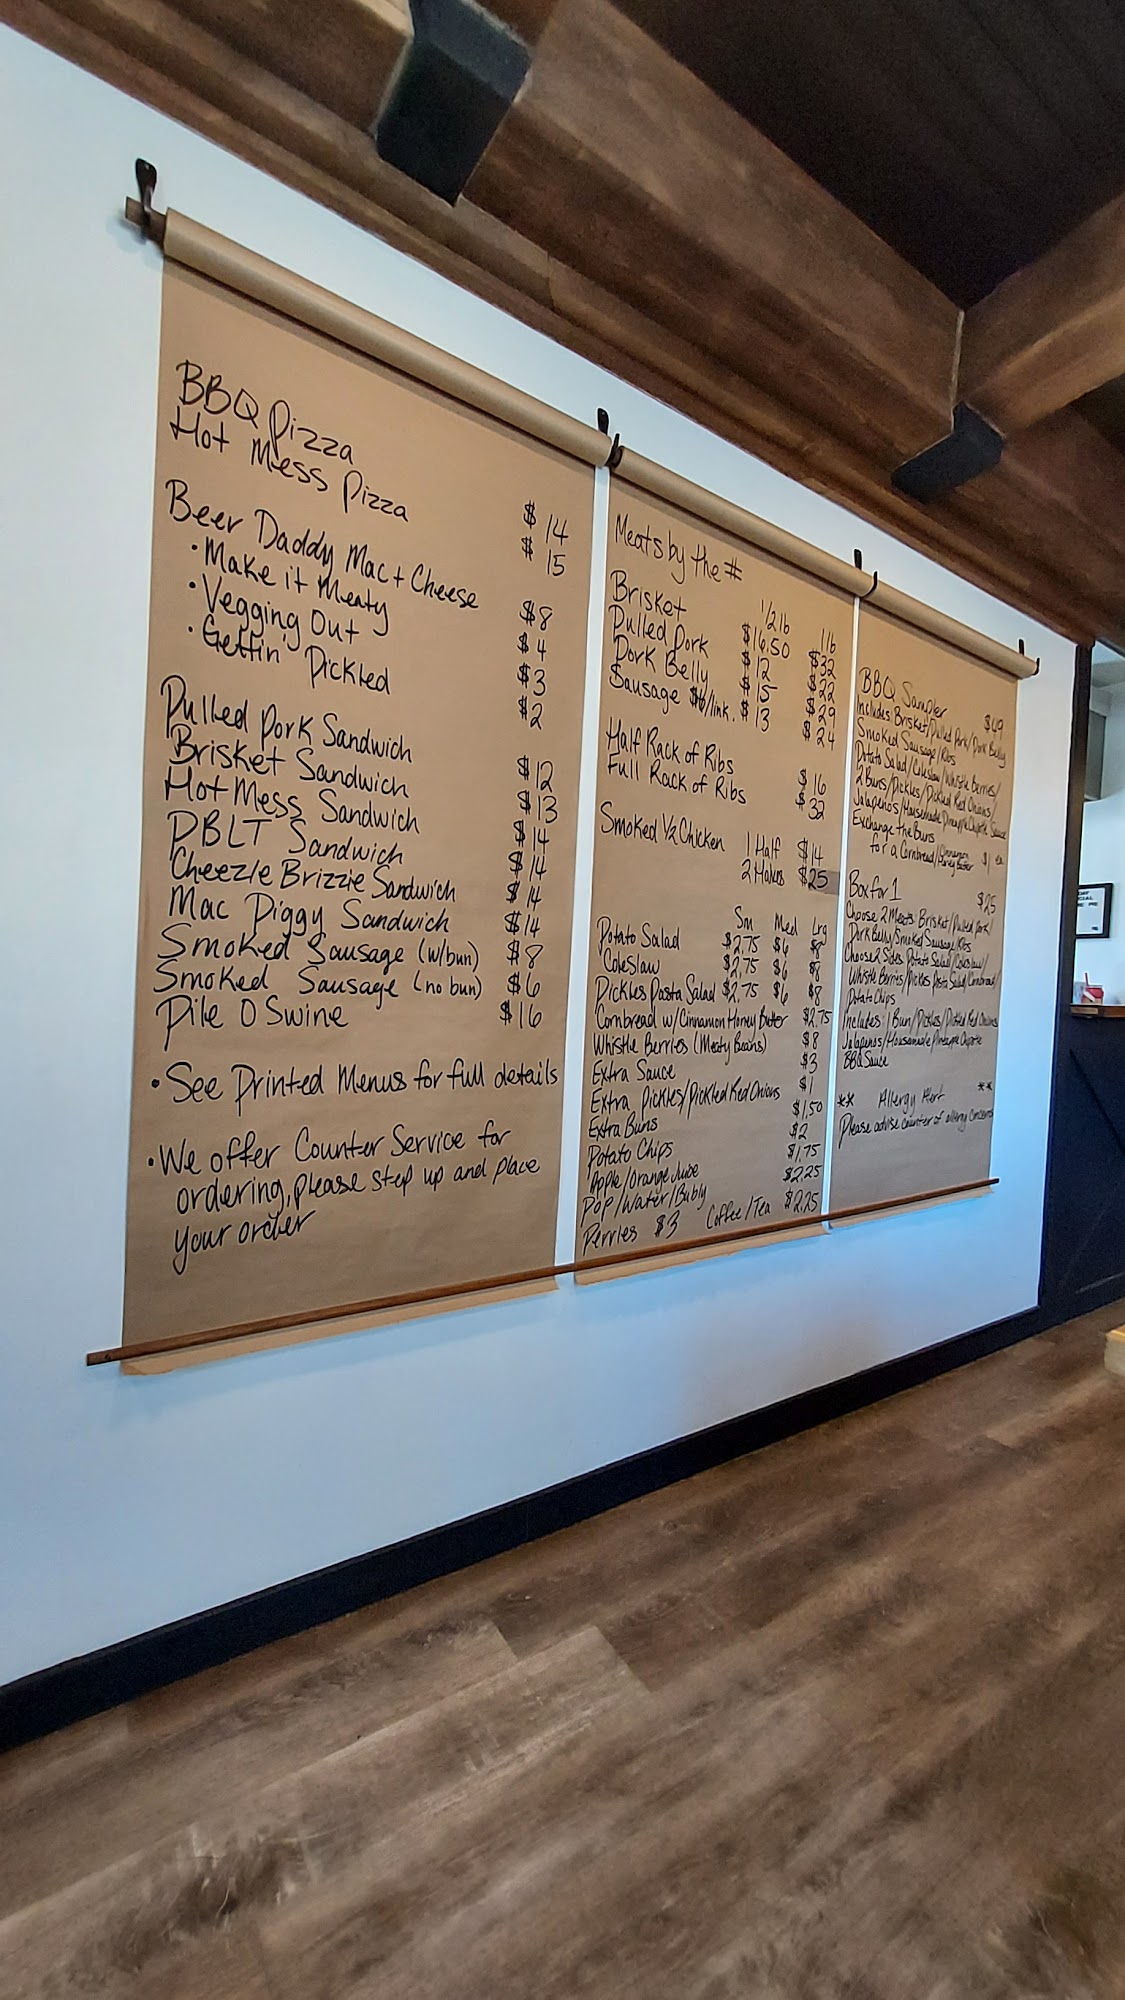 BBQ Pizza $14
Hot Mess Pizza $15
Beer Daddy Mac + Cheese $8
• Make it Meaty $4
• Vegging Out $3
• Gettin' Pickled $2
Pulled Pork Sandwich $12
Brisket Sandwich $13
Hot Mess Sandwich $14
PBLT Sandwich $14
Cheezie Brizzie Sandwich $14
Mac Piggy Sandwich $14
Smoked Sausage (w/bun) $8
Smoked Sausage (no bun) $6
Pile O Swine $16
• See Printed Menus for full details
• We offer Counter Service for
ordering, please step up and place
your order
Meats by the #
1/2 lb 1 lb
Brisket $16.50 $32
Pulled Pork $12 $22
Pork Belly $15 $29
Sausage $6/link. $13 $24
Half Rack of Ribs $16
Full Rack of Ribs $32
Smoked 1/2 Chicken 1 Half $14
2 Halves $25
Sm Med Lrg
Potato Salad $2.75 $6 $8
Coleslaw $2.75 $6 $8
Pickles Pasta Salad $2.75 $6 $8
Cornbread w/Cinnamon Honey Butter $2.75
Whistle Berries (Meaty Beans) $8
Extra Sauce $3
Extra Pickles/Pickled Red Onions $1
Extra Buns $1.50
Potato Chips $2
Apple/Orange Juice $1.75
Pop/Water/Bubly $2.25
Perries $3 Coffee/Tea $2.25
BBQ Sampler $49
Includes Brisket/Pulled Pork/Pork Belly
Smoked Sausage/Ribs
Potato Salad/Coleslaw/Whistle Berries/
2 Buns/Pickles/Pickled Red Onions/
Jalapenos/Housemade Pineapple Chipotle Sauce
Exchange the Buns
for a Cornbread/Cinnamon Honey Butter $1 ea
Box for 1 $25
Choose 2 Meats Brisket/Pulled Pork/
Pork Belly/Smoked Sausage/Ribs
Choose 2 Sides Potato Salad/Coleslaw/
Whistle Berries/Pickles Pasta Salad/Cornbread/
Potato Chips
Includes: 1 Bun/Pickles/Pickled Red Onions
Jalapenos/Housemade Pineapple Chipotle
BBQ Sauce
** Allergy Alert **
Please advise counter of allergy concerns